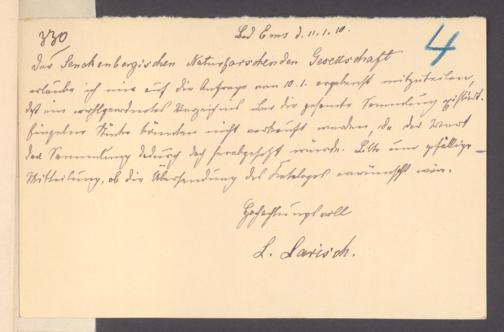 330
Bad Ems d. 11.1.10.
4
Der Senckenbergischen Naturforschenden Gesellschaft
erlaube ich mir auf die Anfrage vom 10.1. ergebenst mitzuteilen,
daß ein wohlgeordnetes Verzeichnis über die gesamte Sammlung existiert.
Einzelne Stücke könnten nicht verkauft werden, da der Wert
der Sammlung dadurch doch herabgesetzt würde. Bitte um gefällige
Mitteilung, ob die Übersendung des Kataloges erwünscht wäre.
Hochachtungsvoll
L. Larisch.